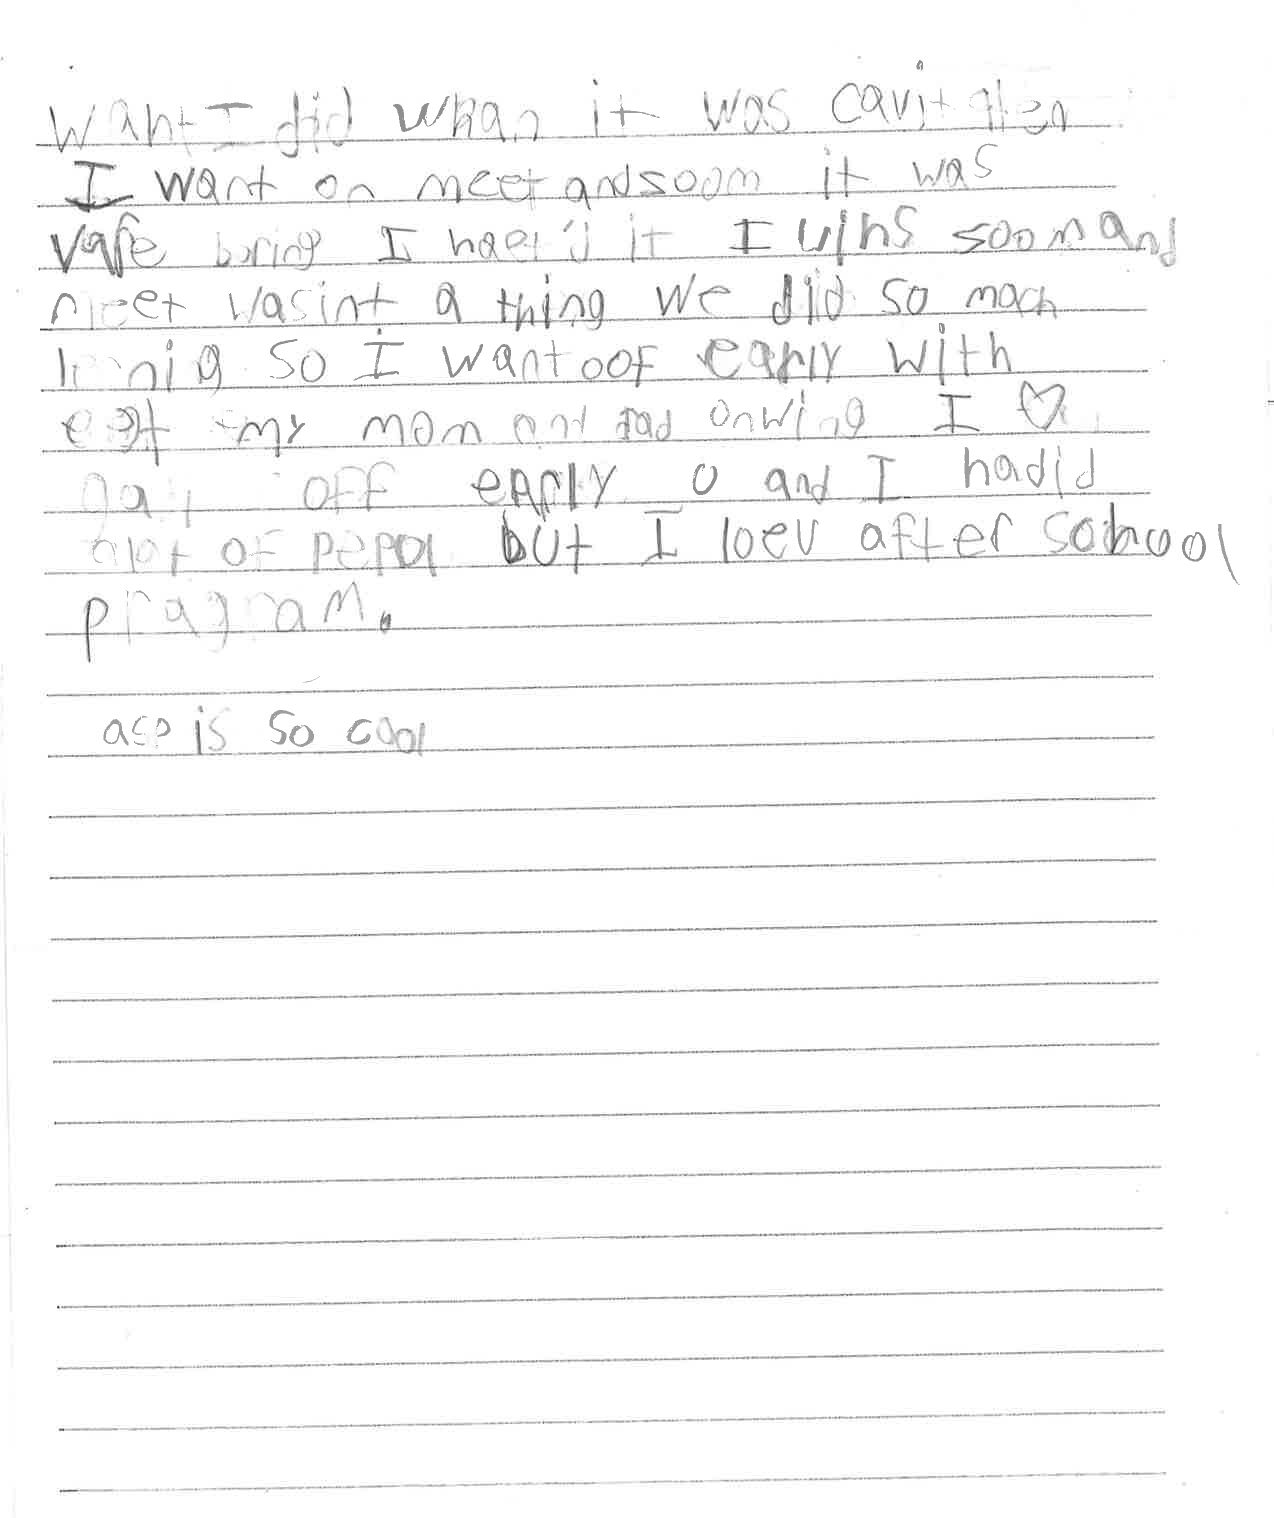 Want I did whan it was cavitqten
I want on meet and soom it was
vare boring I haet'd it I wihs soom and
meet wasint a thing we did so mach
lrnig so I want oof early with
my mom and dad onwing I ♡
off early and I hadid
alot of pepol but I loev after school
program.
asp is so cool